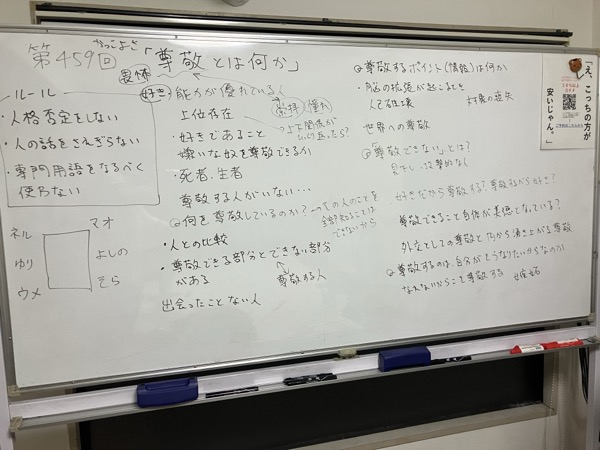 第459回
かっこよさ
「尊敬とは何か」
畏怖
ルール
・人格否定をしない
・人の話をさえぎらない
・専門用語をなるべく
使わない
ネル
ゆり
ウメ
マオ
よしの
そら
好き
能力が優れている人
上位存在
崇拝
憧れ
・好きであること
嫌いな奴を尊敬できるか
・死者、生者
尊敬する人がいない…
Q何を尊敬しているのか?
その人のことを
全部知ることは
できないから
・人との比較
・尊敬できる部分とできない部分
がある
尊敬する人
出会ったことない人
Q尊敬するポイント(情報)は何か
・脳の拡張が起こること
人己破壊
世界への尊敬
Q「尊敬できない」とは?
好きだから尊敬する?尊敬するから好き?
尊敬できること自体が美徳となっている?
外立としての尊敬と内から湧き上がる尊敬
Q尊敬するのは、自分がそうなりたいからなのか
なれないからこそ尊敬する
嫉妬
「え、こっちの方が
安いじゃん。」